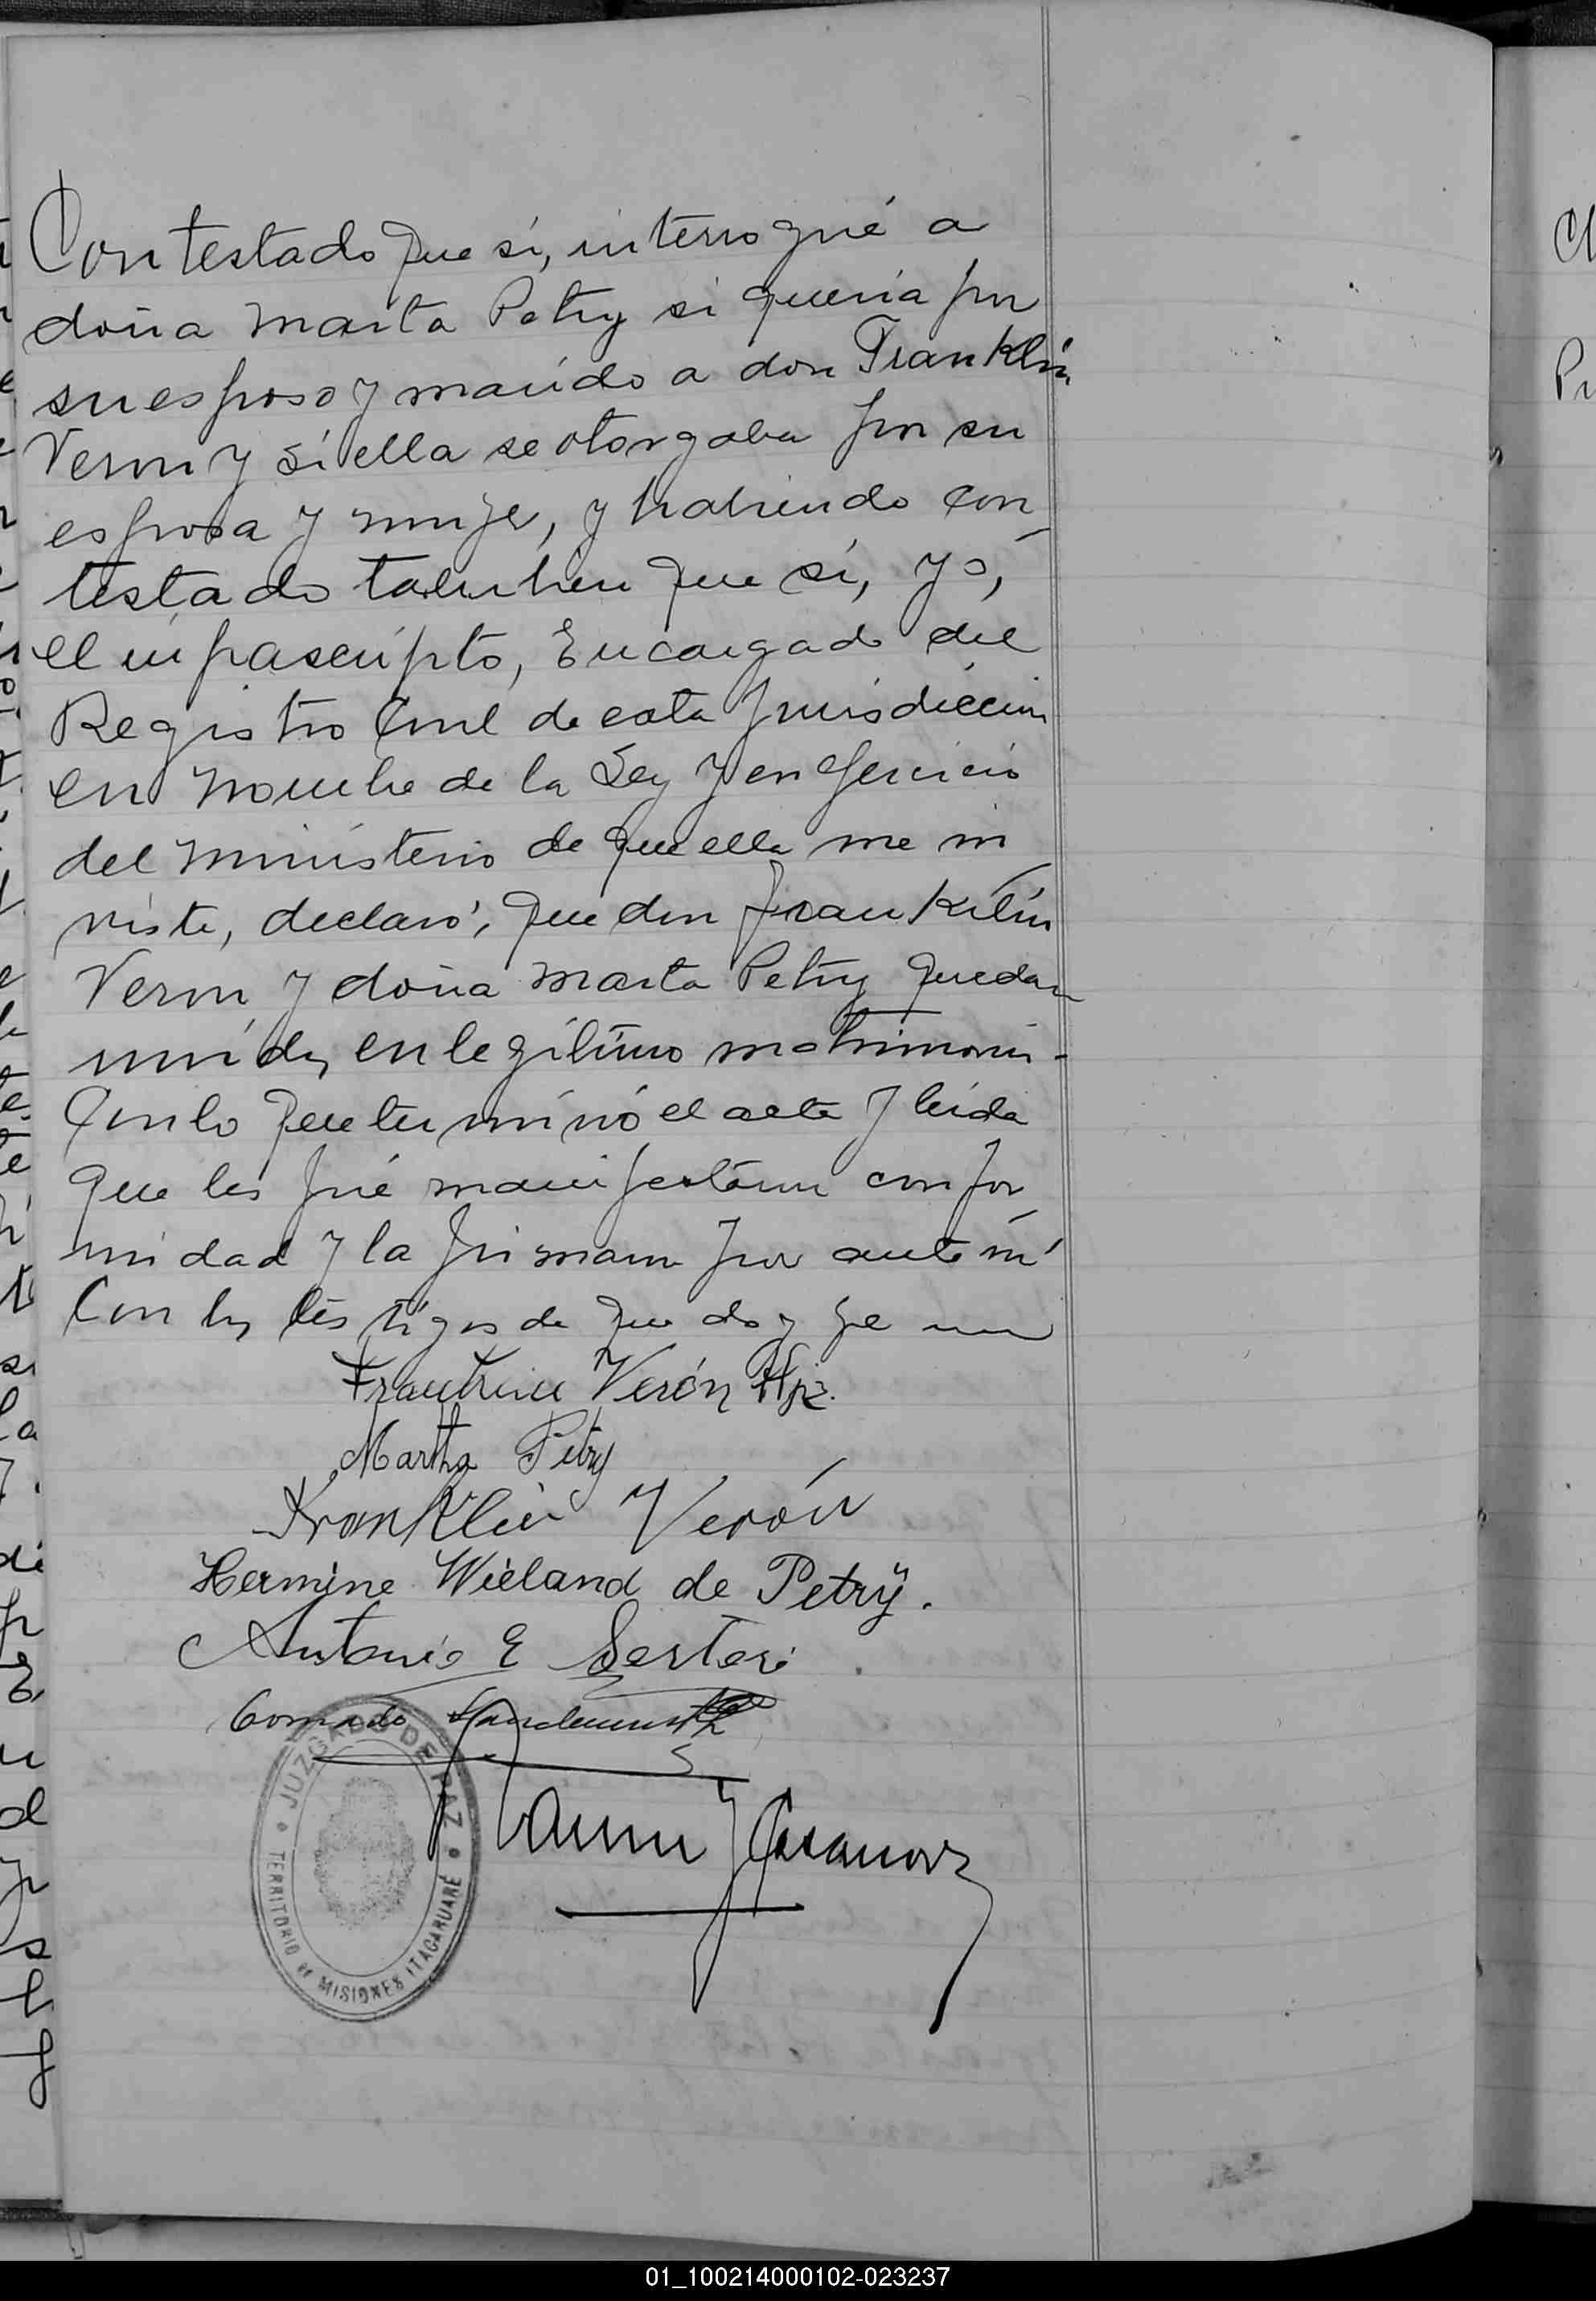 Contestado que sí, interrogué a
doña Marta Petry si quería por
su esposo y marido a don Franklin
Veron y si ella se otorgaba por su
esposa y mujer, y habiendo con
testado tambien que sí, yo,
el infrascripto, Encargado del
Registro Civil de esta Jurisdiccion
en nombre de la Ley y en ejercicio
del ministerio de que ella me in
viste, declaro, que don Franklin
Veron y doña Marta Petry quedan
unidos en legítimo matrimonio-
Con lo que terminó el acta y leida
que les fué manifestaron confor
midad y la firmaron por ante mí
con los testigos de que doy fe
Verón Hijo.
Martha Petry
Franklin Verón
Hermine Wieland de Petrÿ.
Antonio E Sartori
Conrado
Casanova
JUZGADO DE PAZ
TERRITORIO DE MISIONES ITACARUARÉ
01_100214000102-023237